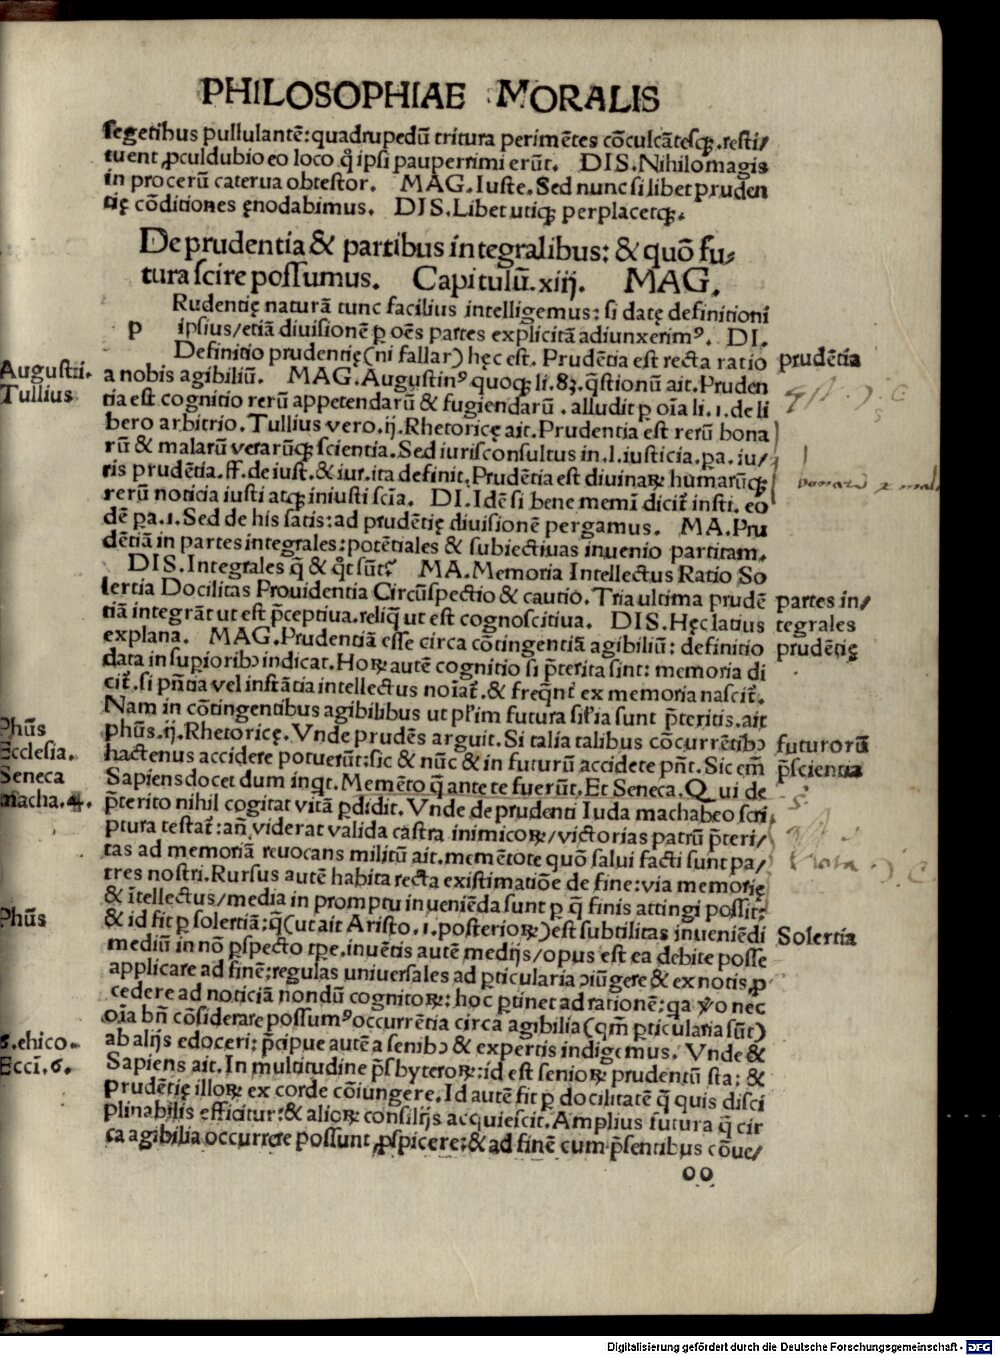 PHILOSOPHIAE MORALIS
segetibus pullulantē:quadrupedū tritura perimētes cōculcātesq;.resti/
tuent ꝓculdubio eo loco q̄ ipsi pauperrimi erūt. DIS.Nihilomagis
in procerū caterua obtestor. MAG.Iuste.Sed nunc si libet pruden
tię cōditiones ęnodabimus. DIS.Libet utiq; perplacetq;.
De prudentia & partibus integralibus: & quō fu/
tura scire possumus. Capitulū.xiij. MAG.
Rudentię naturā tunc facilius intelligemus: si datę definitioni
p ipsius/etiā diuisionē ꝑ oēs partes explicitā adiunxerimꝰ. DI.
Definitio prudentię(ni fallar) hęc est. Prudētia est recta ratio
prudētia
Augusti.
a nobis agibiliū. MAG.Augustinꝰ quoq; li.83.q̄stionū ait.Pruden
Tullius
tia est cognitio rerū appetendarū & fugiendarū . alludit ꝑ oīa li.1.de li
bero arbitrio.Tullius vero.ij.Rhetoricę ait.Prudentia est rerū bona
rū & malarū verarūq; scientia.Sed iurisconsultus in.l.iusticia.pa.iu/
ris prudētia.ff.de iust.& iur.ita definit.Prudētia est diuinaꝝ humarūq;
bonarū & mal
rerū noticia iusti atq; iniusti scīa. DI.Idē si bene memī dicit̄ insti. eo
dē pa.1.Sed de his satis:ad prudētię diuisionē pergamus. MA.Pru
dētiā in partes integrales:potētiales & subiectiuas inuenio partitam.
DIS.Integrales q̄ & q̄t sūt? MA.Memoria Intellectus Ratio So
lertia Docilitas Prouidentia Circūspectio & cautio.Tria ultima prudē
partes in/
tiā integrāt ut est p̄ceptiua.reliq̄ ut est cognoscitiua. DIS.Hęc latius
tegrales
explana. MAG.Prudentiā esse circa cōtingentiā agibiliū: definitio
prudētię
data in supioribꝰ indicat.Hoꝝ autē cognitio si p̄terita sint: memoria di
cit̄.si pn̄tia vel instātia intellectus noīat̄.& freq̄nt̄ ex memoria nascit̄.
Nam in cōtingentibus agibilibus ut pl̄im futura sil̄ia sunt p̄teritis.ait
Phūs
phūs.ij.Rhetoricę.Vnde prudēs arguit.Si talia talibus cōcurrētibꝰ
futurorū
Ecclesia.
hactenus accidere potuerūt:sic & nūc & in futurū accidere pn̄t.Sic em̄
p̄scientia
Seneca
Sapiens docet dum inq̄t.Memēto q̄ ante te fuerūt.Et Seneca.Qui de
macha.4.
p̄terito nihil cogitat vitā ꝑdidit.Vnde de prudenti Iuda machabeo scri
ptura testat̄:an̄ viderat valida castra inimicoꝝ/victorias patrū p̄teri/
tas ad memoriā reuocans militū ait.memētote quō salui facti sunt pa/
tres nostri.Rursus autē habita recta existimatiōe de fine:via memorię
& ītellectus/media in promptu inueniēda sunt ꝑ q̄ finis attingi possit:
Phūs
& id fit ꝑ solertiā:q̄(ut ait Aristo.1.posterioꝝ)est subtilitas inueniēdi
Solertia
mediū in nō ꝑspecto tꝑe.inuētis autē medijs/opus est ea debite posse
applicare ad finē:regulas uniuersales ad ꝑticularia ɔiūgere & ex notis ꝓ
cedere ad noticiā nondū cognitoꝝ: hoc ꝑtinet ad rationē:qa v̊o nec
oīa bn̄ cōsiderare possumꝰ occurrētia circa agibilia(qm̄ ꝑticularia sūt)
6.ethico.
ab alijs edoceri: p̄cipue autē a senibꝰ & expertis indigemus. Vnde &
Ecci.6.
Sapiens ait.In multitudine p̄sbyteroꝝ:id est senioꝝ prudentū sta: &
prudētię illoꝝ ex corde cōiungere.Id autē fit ꝑ docilitatē q̄ quis disci
plinabilis efficitur:& alioꝝ consilijs acquiescit.Amplius futura q̄ cir
ca agibilia occurrere possunt ꝓspicere:& ad finē cum p̄sentibus cōue/
oo
Digitalisierung gefördert durch die Deutsche Forschungsgemeinschaft - DFG